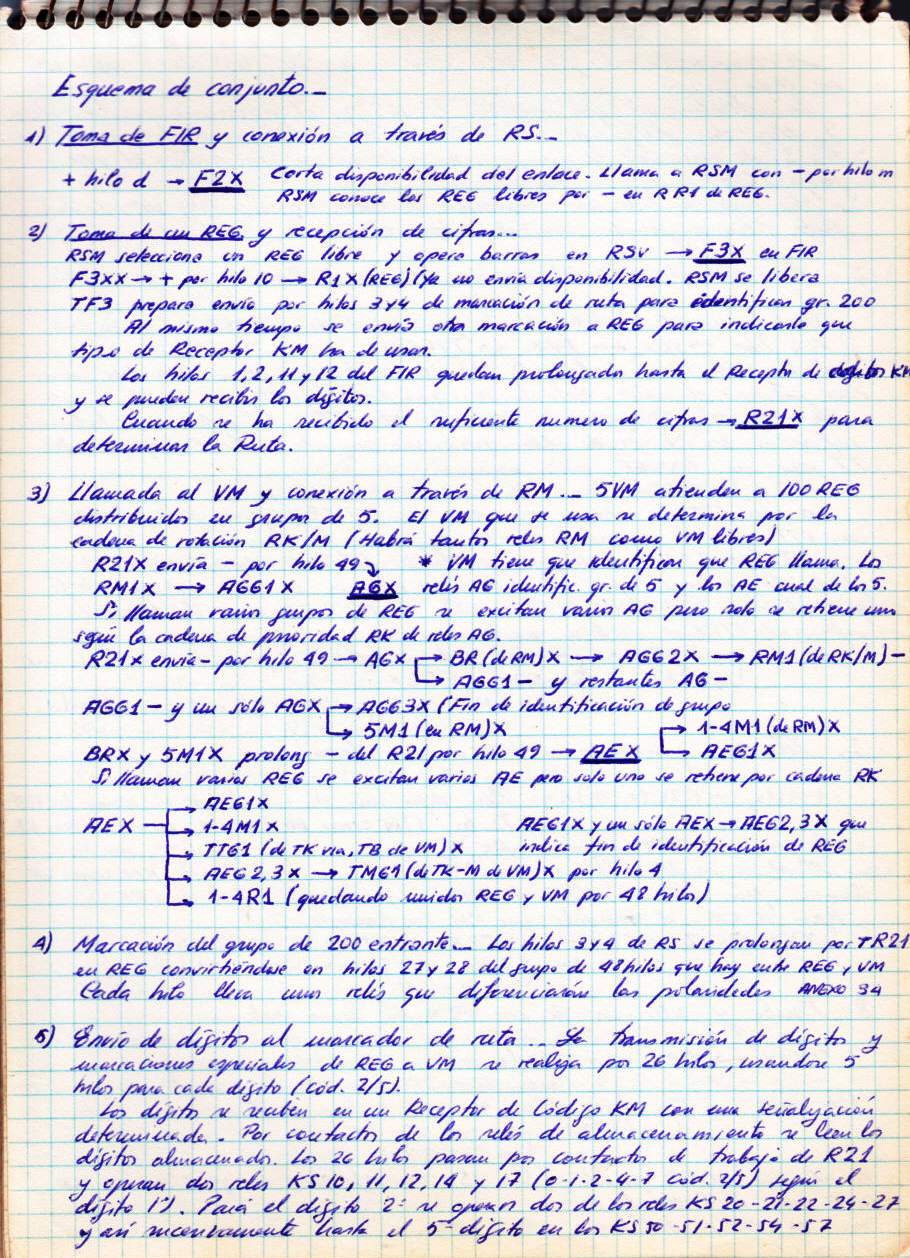 Esquema de conjunto.-
1) Toma de FIR y conexión a través de RS.-
+ hilo d → F2X Corta disponibilidad del enlace. Llama a RSM con - por hilo m
RSM conoce los REG libres por - en RR1 de REG.
2) Toma de un REG y recepción de cifras...
RSM selecciona un REG libre y opera barras en RSV → F3X en FIR
F3XX → + por hilo 10 → R1X (REG) (ya no envia disponibilidad. RSM se libera
TF3 prepara envio por hilos 3 y 4 de marcación de ruta para identificar gr. 200
Al mismo tiempo se envía otra marcación a REG para indicarle que
tipo de Receptor KM ha de usar.
Los hilos 1, 2, 11 y 12 del FIR quedan prolongados hasta el Receptor de dígitos KM
y se pueden recibir los dígitos.
Cuando se ha recibido el suficiente numero de cifras → R21X para
determinar la Ruta.
3) Llamada al VM y conexión a través de RM.- 5VM atienden a 100 REG
distribuidos en grupos de 5. El VM que se usa se determina por la
cadena de rotación RK/M (Habrá tantos relés RM como VM libres)
R21X envía - por hilo 49 * VM tiene que identificar que REG llama. Los
RM1X → AGG1X AGX relés AG identific. gr. de 5 y los AE cual de los 5.
Si llaman varios grupos de REG se excitan varios AG pero solo se retiene uno
según la cadena de prioridad RK de relés AG.
R21X envía - por hilo 49 → AGX → BR (de RM) X → AGG2X → RM1 (de RK/M) -
→ AGG1 - y restantes AG -
AGG1 - y un sólo AGX → AGG3X (Fin de identificación de grupo
→ 5M1 (en RM) X → 1-4M1 (de RM) X
BRX y 5M1X prolong - del R21 por hilo 49 → AEX → AEG1X
Si llaman varios REG se excitan varios AE pero solo uno se retiene por cadena RK
→ AEG1X
AEX → 1-4M1X AEG1X y un sólo AEX → AEG2,3X que
→ TTG1 (de TK via, TB de VM) X indica fin de identificación de REG
→ AEG2,3X → TMG1 (de TK-M de VM) X por hilo 4
→ 1-4R1 (quedando unidos REG y VM por 48 hilos)
4) Marcación del grupo de 200 entrante.- Los hilos 3 y 4 de RS se prolongan por TR21
en REG convirtiéndose en hilos 27 y 28 del grupo de 48 hilos que hay entre REG y VM
Cada hilo lleva unos relés que diferenciarán las polaridades ANEXO 34
5) Envio de dígitos al marcador de ruta.- La transmisión de dígitos y
marcaciones especiales de REG a VM se realiza por 26 hilos, usandose 5
hilos para cada dígito (cód. 2/5).
Los dígitos se reciben en un Receptor de Código KM con una señalización
determinada. Por contactos de los relés de almacenamiento se leen los
dígitos almacenados. Los 26 hilos pasan por contactos de trabajo de R21
y operan dos relés KS10, 11, 12, 14 y 17 (0-1-2-4-7 cód. 2/5) según el
dígito 1º). Para el dígito 2º se operan dos de los relés KS 20-21-22-24-27
y así sucesivamente hasta el 5º dígito en los KS 50-51-52-54-57